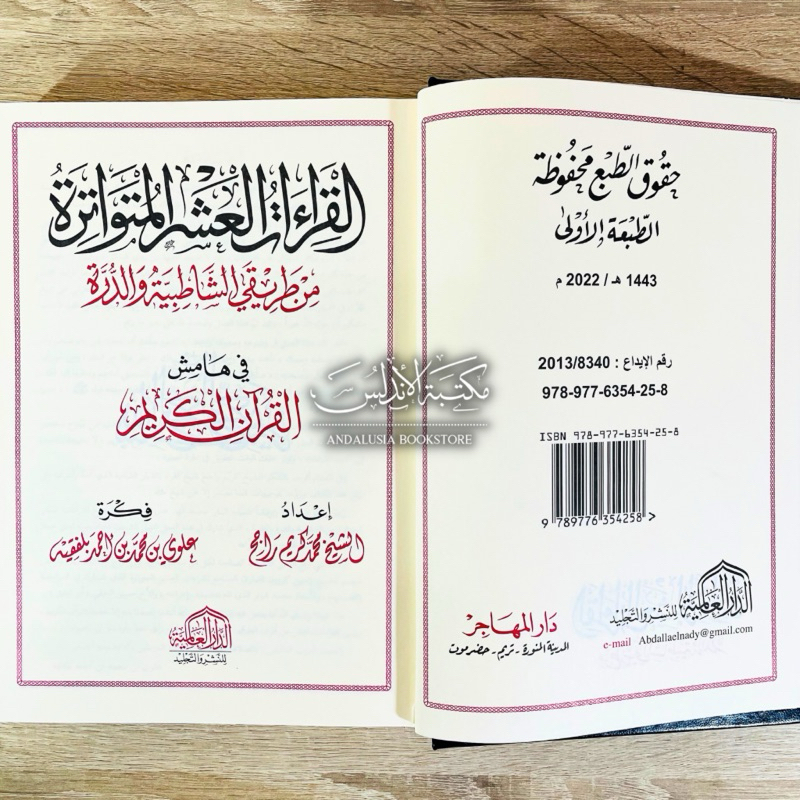 حقوق الطبع محفوظة
الطبعة الأولى
1443 هـ / 2022 م
رقم الإيداع : 2013/8340
978-977-6354-25-8
ISBN 978-977-6354-25-8
9 789776 354258 >
الدار العالمية للنشر والتجليد
e-mail Abdallaelnady@gmail.com
دار المهاجر
المدينة المنورة - تريم - حضرموت
القراءات العشر المتواترة
من طريقي الشاطبية والدرة
في هامش
القرآن الكريم
إعداد
الشيخ محمد كريم راجح
فكرة
علوي بن محمد بن أحمد بلفقيه
الدار العالمية
للنشر والتجليد
مكتبة الأندلس
ANDALUSIA BOOKSTORE